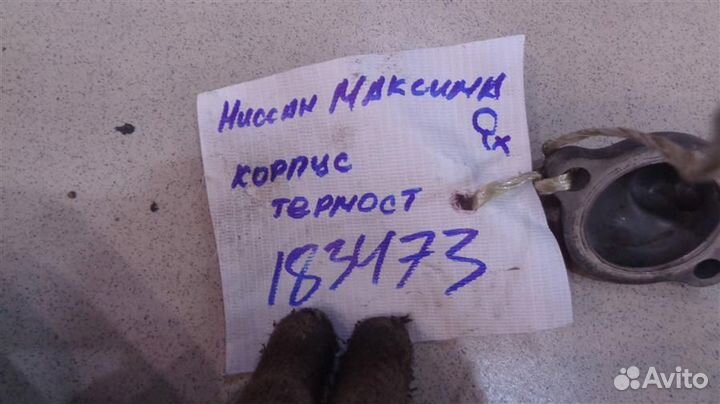 Ниссан Максима
Qx
корпус
термост
183473
Avito